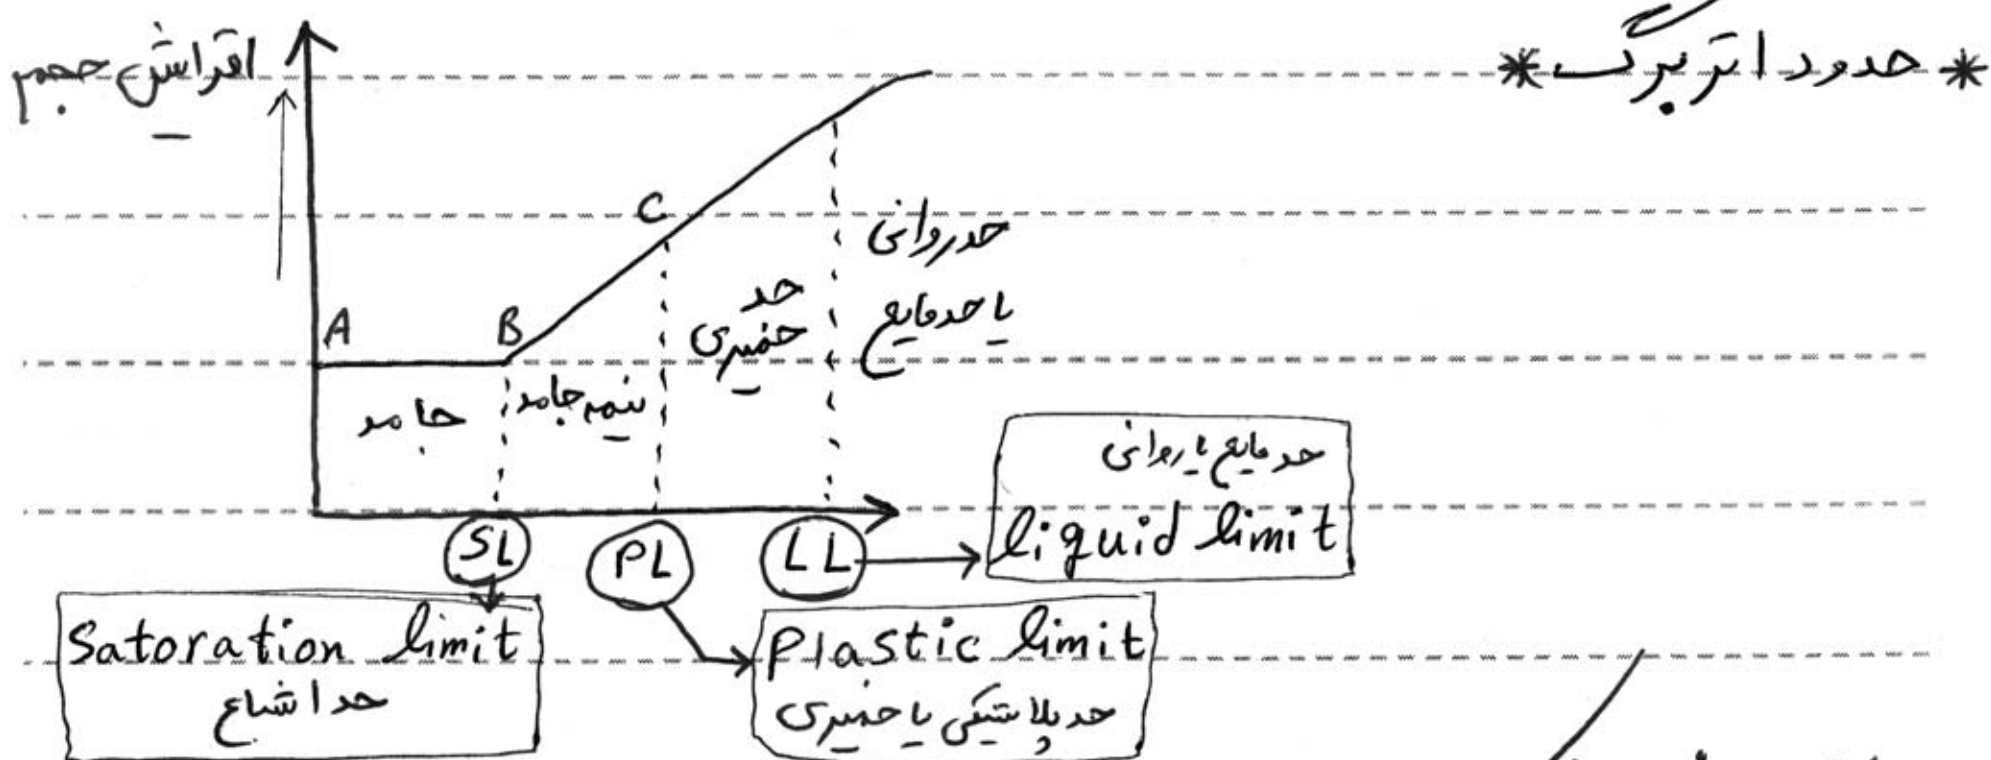 * حدود اتربرگ *
افزایش حجم
A
B
C
جامد
نیمه جامد
حد
خمیری
حد روانی
یا حد مایع
SL
PL
LL
حد مایع یا روانی
liquid limit
Satoration limit
حد اشباع
Plastic limit
حد پلاستیکی یا خمیری